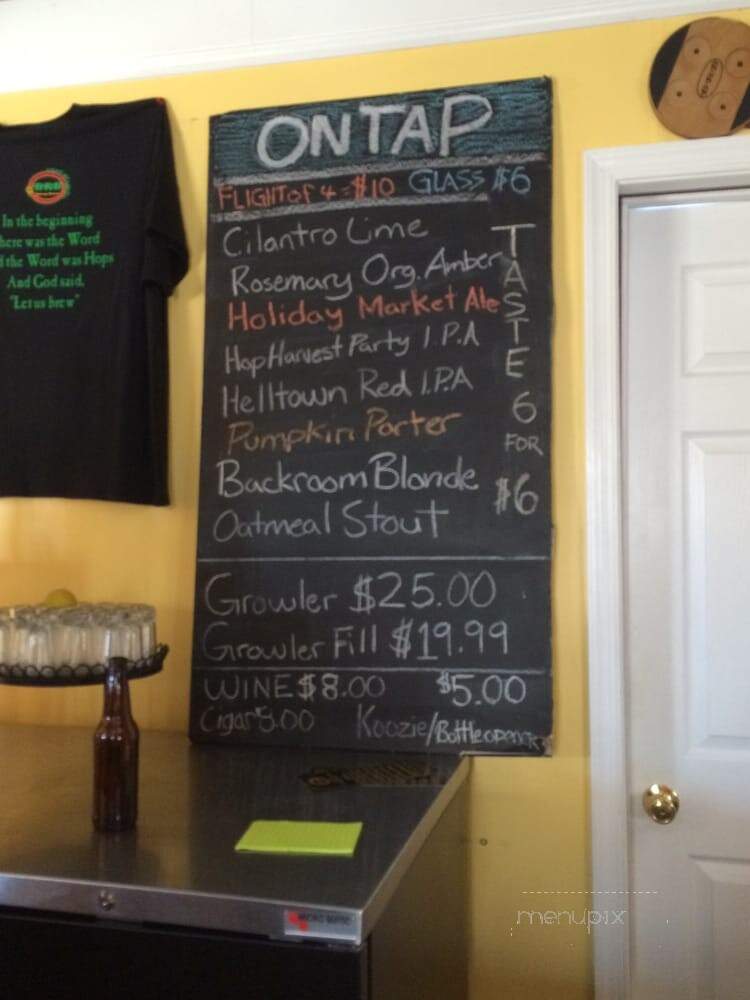 In the beginning
here was the Word
d the Word was Hops
And God said,
"Let us brew"
ON TAP
FLIGHT of 4 = $10 GLASS $6
Cilantro Lime
Rosemary Org. Amber
Holiday Market Ale
Hop Harvest Party I.P.A
Helltown Red I.P.A
Pumpkin Porter
Backroom Blonde
Oatmeal Stout
TASTE
6
FOR
$6
Growler $25.00
Growler Fill $19.99
WINE $8.00 $5.00
Cigar Koozie/Bottle opener
menupix